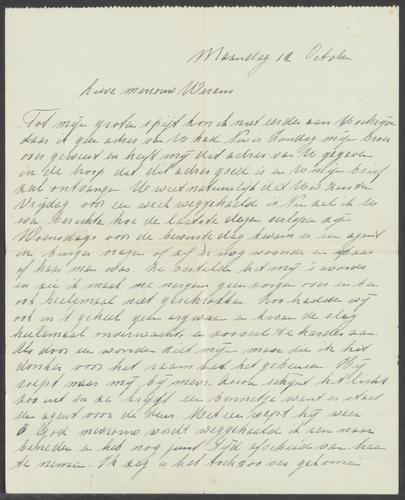 Maandag 12 October
Lieve mevrouw Wesens
Tot mijn groten spijt kon ik niet eerder aan U schrijven
daar ik geen adres van U had Nu is Zondag mijn broer
over geweest en heeft mij dit adres van U gegeven
in de hoop dat dit adres goed is en U mijn brief
zal ontvangen. U weet natuurlijk dat Uw zuster
Vrijdag voor een week weggehaald is Nu zal ik U
een berichte hoe de laatste dagen verlopen zijn
Woensdags voor de bewuste dag kwam er een agent
in burger vragen of zij er nog woonde en waar
of haar man was. Ze vertelde het mij 's avonds
en zei ik maak me nergens geen zorgen over en ben
ook heelemaal niet geschrokken. Zoo hadden wij
ook in 't geheel geen argwaan en kwam de slag
heelemaal onverwachts en zooveel te harder aan.
Als door een wonder ziet mijn man die in het
donker voor het raam zat het gebeuren. Hij
roept naar mij bij mevr. boven schijnt het licht
zoo uit en ze krijgt een bonnetje want er staat
een agent voor de deur. Met een roept hij weer
O God mevrouw wordt weggehaald ik ren naar
beneden en heb nog juist tijd afscheid van haar
te nemen. Ik zag is het toch zoo ver gekomen